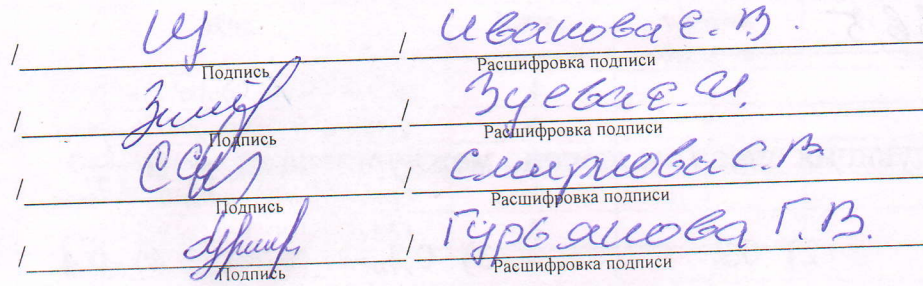 / / Иванова Е. В.
Подпись Расшифровка подписи
/ / Зуева Е. И.
Подпись Расшифровка подписи
/ / Смирнова С. В.
Подпись Расшифровка подписи
/ / Гурьянова Г. В.
Подпись Расшифровка подписи